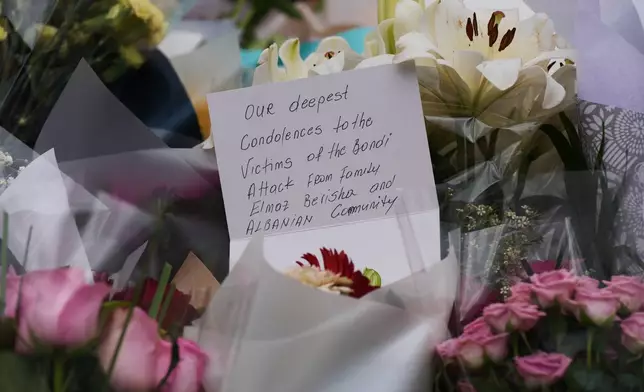 Our deepest
Condolences to the
Victims of the Bondi
Attack from family
Elmaz Berisha and
ALBANIAN Community